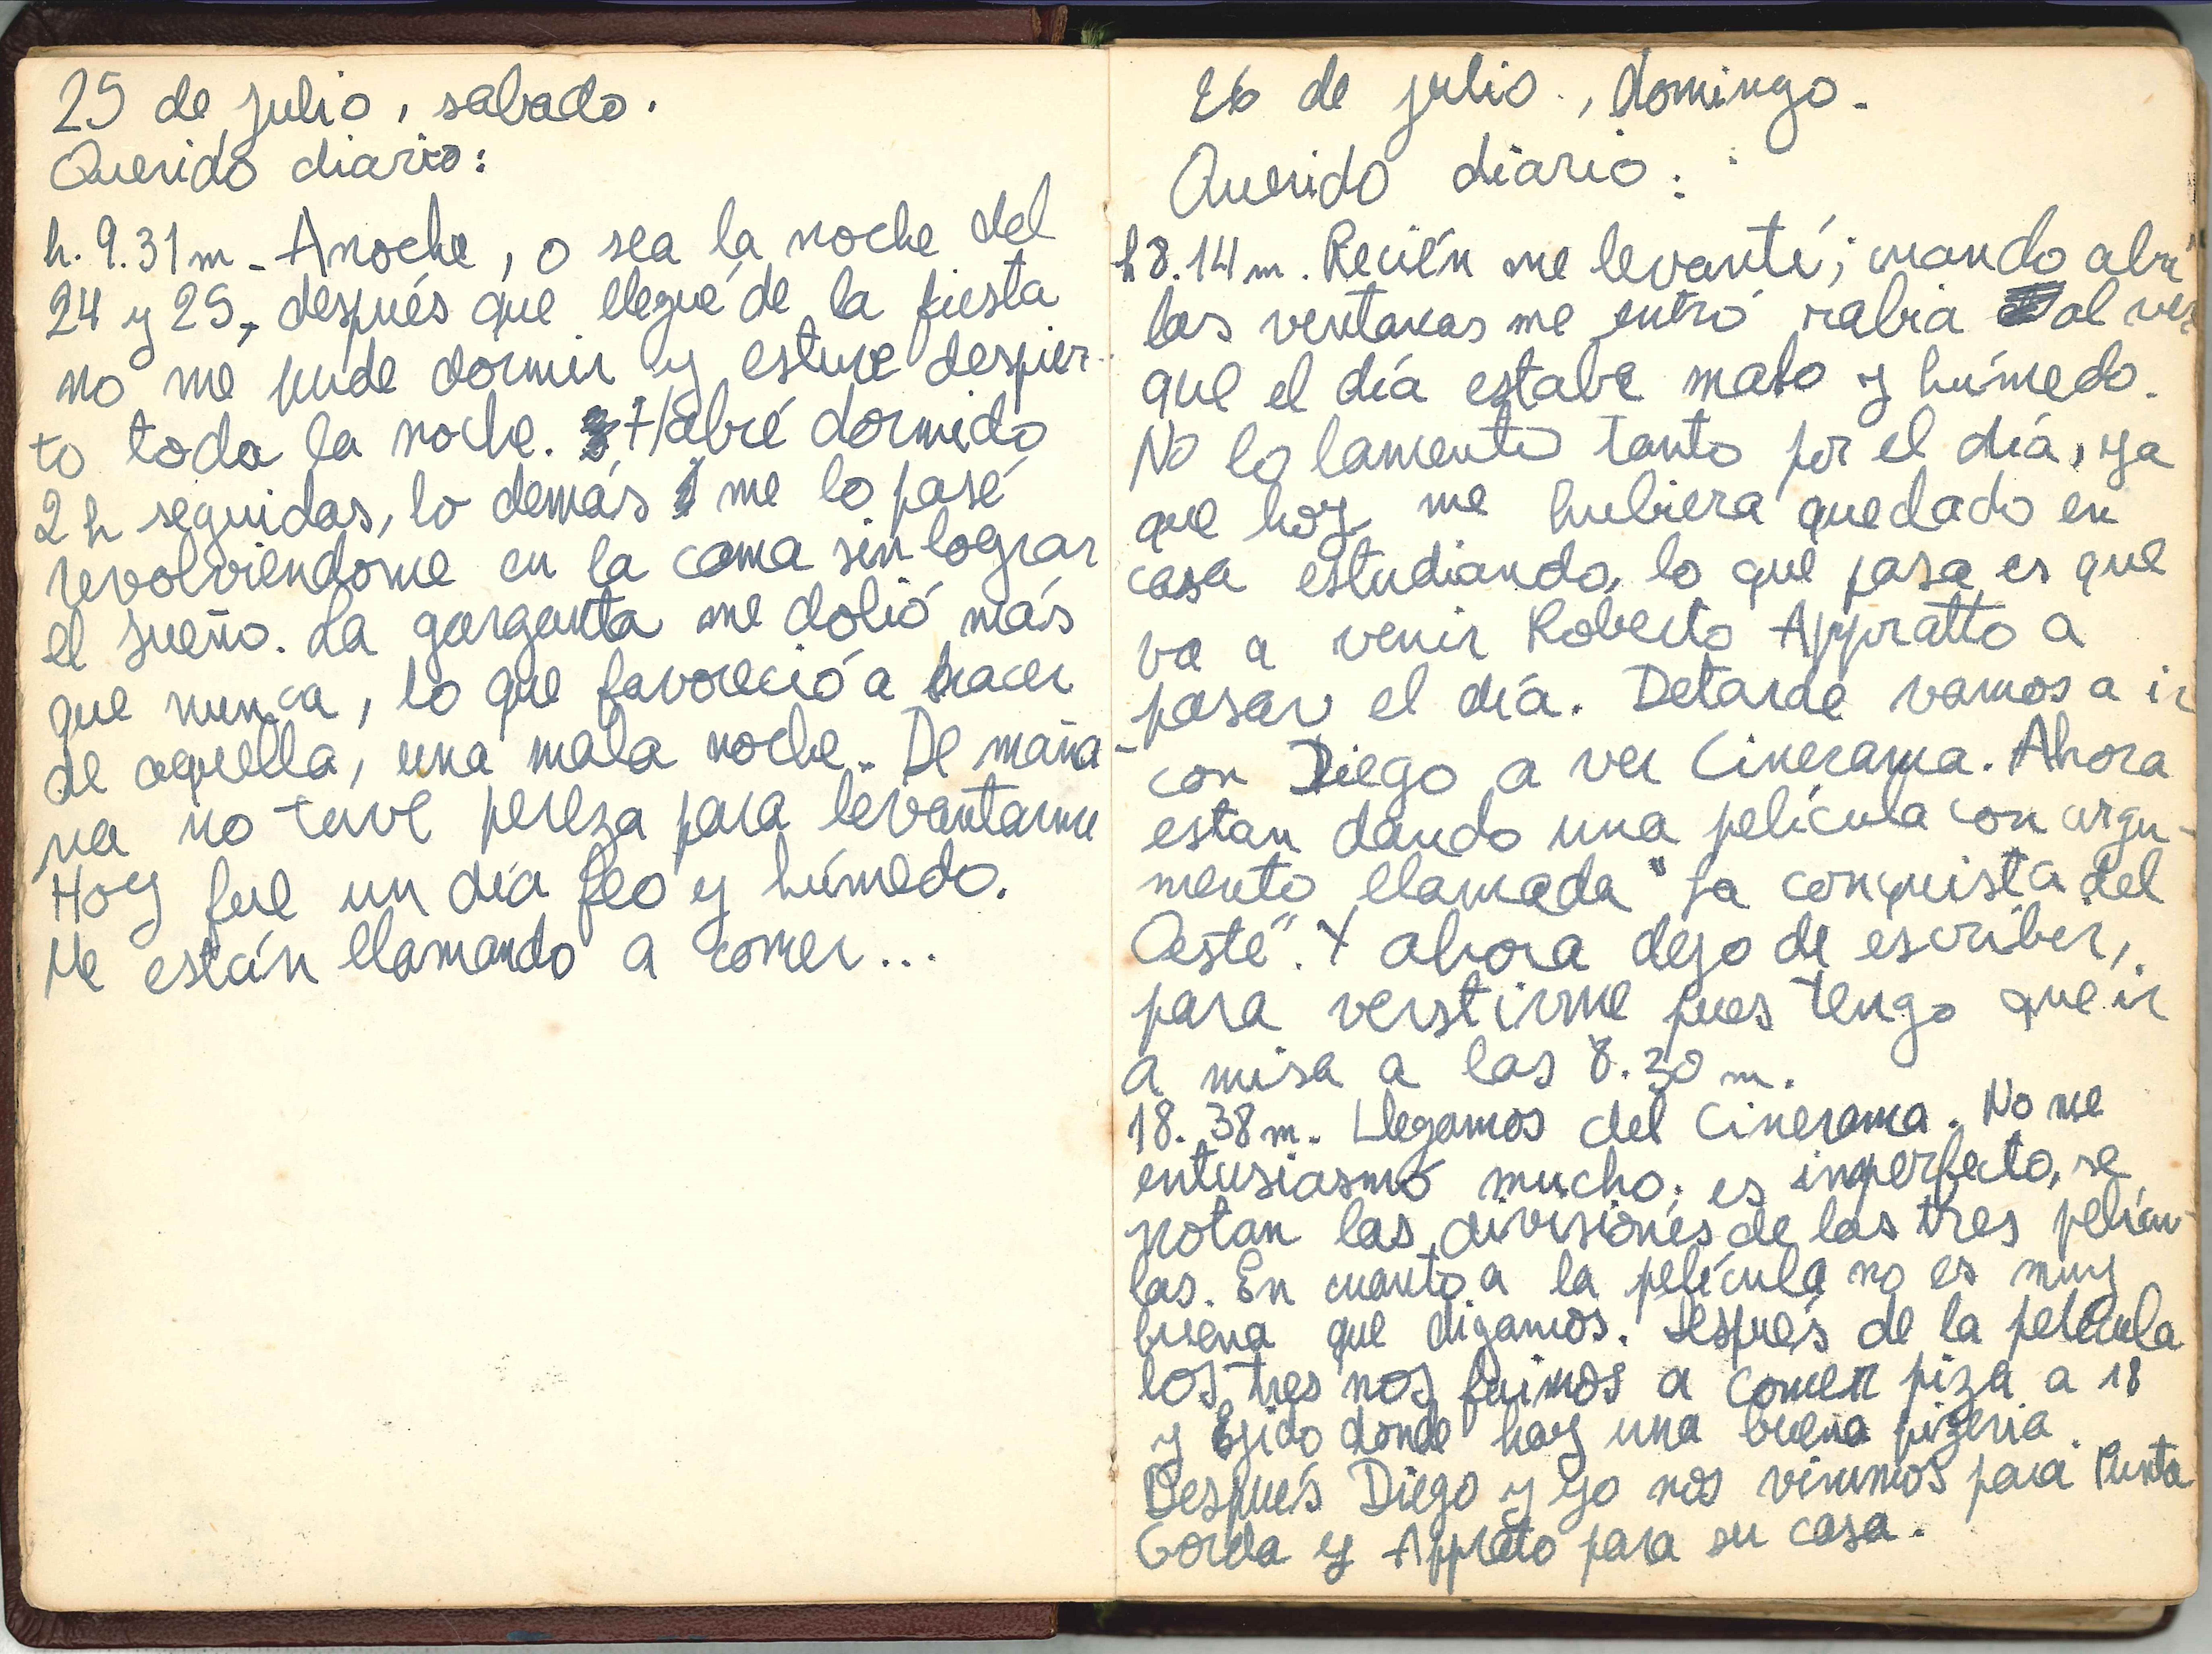 25 de julio, sabado.
Querido diario:
h. 9.31m - Anoche, o sea la noche del
24 y 25, después que llegué de la fiesta
no me pude dormir y estuve despier-
to toda la noche. Habré dormido
2 h seguidas, lo demás me lo pasé
revolviendome en la cama sin lograr
el sueño. La garganta me dolió más
que nunca, lo que favoreció a hacer
de aquella, una mala noche. De maña-
na no tuve pereza para levantarme
Hoy fue un día feo y húmedo.
Me están llamando a comer...
26 de julio, domingo.
Querido diario:
h 8.14m. Recién me levanté; cuando abrí
las ventanas me entró rabia al ver
que el día estaba malo y húmedo.
No lo lamento tanto por el día, ya
que hoy me hubiera quedado en
casa estudiando, lo que pasa es que
va a venir Roberto Appratto a
pasar el día. Detarde vamos a ir
con Diego a ver Cinerama. Ahora
estan dando una película con argu-
mento llamada "La conquista del
Oeste". Y ahora dejo de escriber,
para verstirme pues tengo que ir
a misa a las 8.30 m.
18. 38m. Llegamos del Cinerama. No me
entusiasmó mucho; es imperfecto, se
notan las divisiones de las tres pelícu-
las. En cuanto a la película no es muy
buena que digamos. Después de la película
los tres nos fuimos a comer piza a 18
y Ejido donde hay una buena pizeria.
Después Diego y yo nos vinimos para Punta
Gorda y Appratto para su casa.